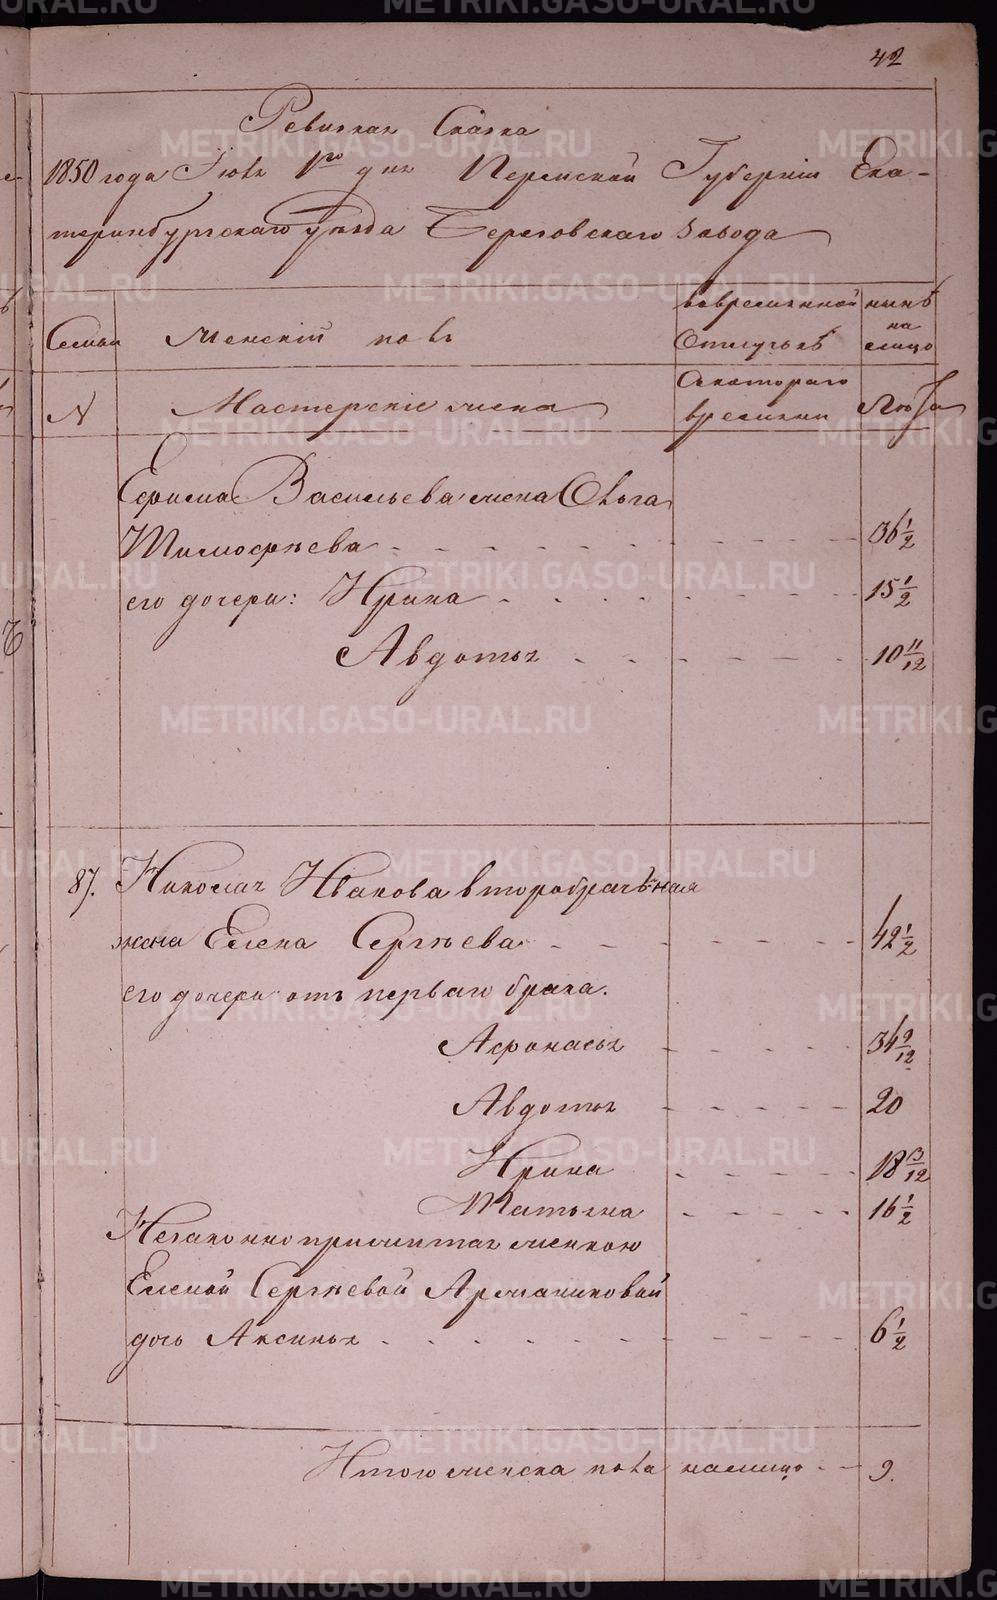 42
Ревизкая Сказка
1850 года Июня 1го дня Пермской Губернiи Ека-
теринбургскаго уѣзда Березовскаго завода
Семьи
Женскiй полъ
во временной Отлучкѣ
нынѣ на лицо
N
Мастерскiе жена
Съ котораго времяни
Лѣта
Ефима Васильева жена Ольга
Тимофѣева - - - - - - - - 36 1/2
его дочери: Ирина - - - - - - - 15 1/2
Авдотья - - - - - - 10 11/12
87. Николая Иванова второбрачьная
жена Елена Сергѣева - - - - - - - 42 1/2
его дочери отъ перваго брака.
Афонасья - - - - - 34 9/12
Авдотья - - - - - 20
Ирина - - - - - 18 3/12
Татьяна - - - - - 16 1/2
Незаконно прижитая женкою
Еленой Сергѣевой Армяниновой
дочь Аксинья - - - - - - - - - 6 1/2
Итого женска пола налицо - - 9.
METRIKI.GASO-URAL.RU